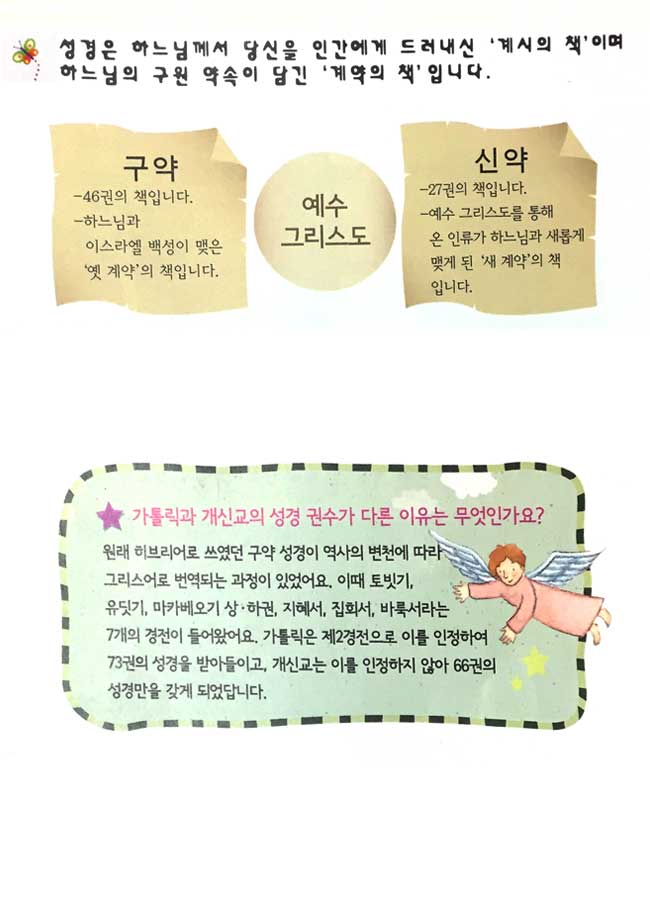 성경은 하느님께서 당신을 인간에게 드러내신 '계시의 책'이며
하느님의 구원 약속이 담긴 '계약의 책'입니다.
구약
-46권의 책입니다.
-하느님과
이스라엘 백성이 맺은
'옛 계약'의 책입니다.
예수
그리스도
신약
-27권의 책입니다.
-예수 그리스도를 통해
온 인류가 하느님과 새롭게
맺게 된 '새 계약'의 책
입니다.
가톨릭과 개신교의 성경 권수가 다른 이유는 무엇인가요?
원래 히브리어로 쓰였던 구약 성경이 역사의 변천에 따라
그리스어로 번역되는 과정이 있었어요. 이때 토빗기,
유딧기, 마카베오기 상·하권, 지혜서, 집회서, 바룩서라는
7개의 경전이 들어왔어요. 가톨릭은 제2경전으로 이를 인정하여
73권의 성경을 받아들이고, 개신교는 이를 인정하지 않아 66권의
성경만을 갖게 되었답니다.